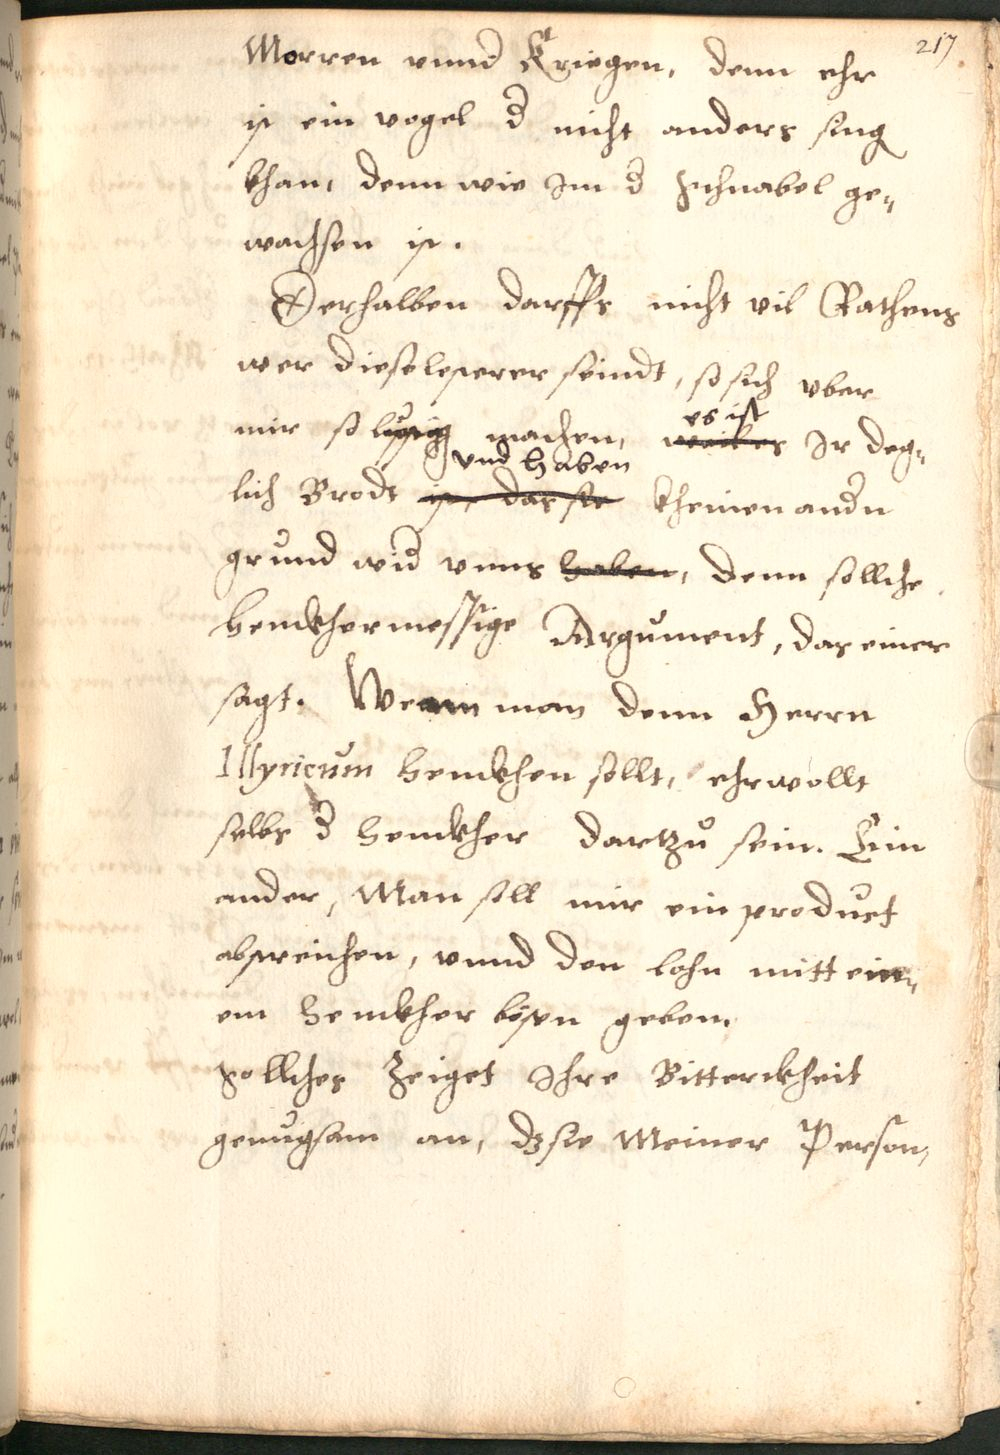 217
Morren vnnd Kriegen, denn ehr
ist ein vogel d nicht anders sing
khan, denn wie Im d schnabel ge„
wachsen ist.
Derhalben darffs nicht vil Rathens
wer diese lesterer seindt, so sich vber
mir so lustig machen, es ist Ir deg„
lich Brodt vnd haben kheinen andn
grund wid vnns haben, denn sollche
henckhermessige Argument, das einer
sagt. Wenn man denn Herrn
Illyricum henckhen sollt, ehr wollt
selbs d henckher dartzu sein. Ein
ander, Man soll mir ein product
abstreichen, vnnd den lohn mitt ein„
em henckher besen geben.
Sollches Zeiget Ihre Bitterckheit
genugsam an, dz sie Meiner Person,